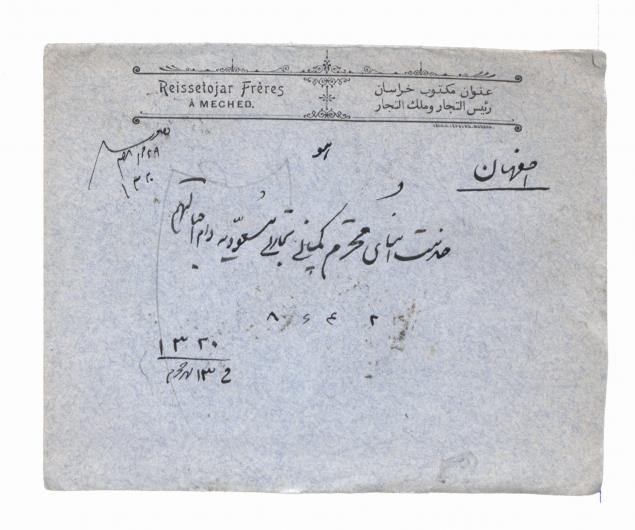 Reissetojar Frères
À MECHED.
عنوان مکتوب خراسان
رئیس التجار و ملك التجار
هو
اصفهان
خدمت امنای محترم کمپانی تجارتی مسعودیه دام اقبالهم
۲ ۴ ۶ ۸
۱۳۲۰
فی ۱۳ شهر محرم